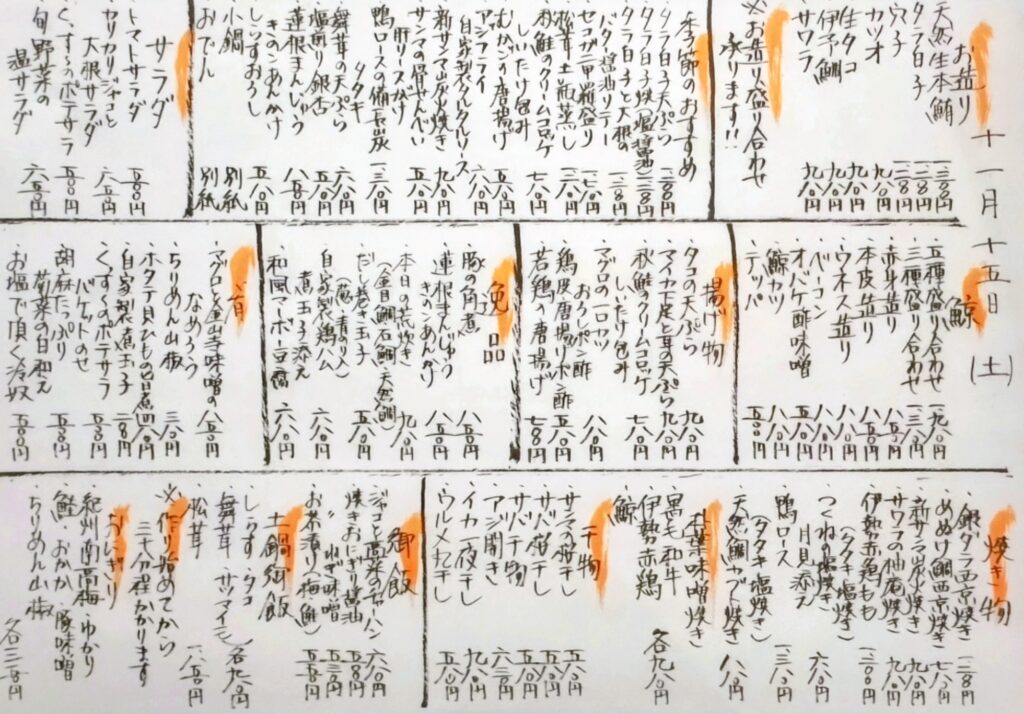 十一月十五日(土)
お造り
天然生本鮪
タラ白子
穴子
カツオ 九八〇円
生タコ 九八〇円
伊予鯛 九八〇円
サワラ 九八〇円
※お造り盛り合わせ
承ります!!
季節のおすすめ
タラ白子天ぷら
タラ白子焼(塩・醤油)
タラ白子と大根の
バター醤油ソテー
セコガニ甲羅盛り
松茸土瓶蒸し
秋鮭のクリームコロッケ
しいたけ包み 七八〇円
むかごから揚げ
アジフライ
自家製タルタルソース
新サンマ炭火焼き 九八〇円
サンマの骨せんべい
肝ソースかけ
鴨ロースの備長炭
タタキ
舞茸の天ぷら 六八〇円
塩煎り銀杏 五八〇円
蓮根まんじゅう 八五〇円
きのこあんかけ
しらすおろし 五八〇円
小鍋 別紙
おでん 別紙
サラダ
トマトサラダ 五五〇円
カリカリジャコと
大根サラダ 六五〇円
くすくすのポテサラ 五五〇円
旬野菜の
温サラダ 六五〇円
鯨
五種盛り合わせ
三種盛り合わせ
赤身造り
本皮造り
ウネス造り
ベーコン
オバケ酢味噌
鯨カツ
テッパ
揚げ物
タコの天ぷら 九八〇円
マイカ下足と耳の天ぷら 九八〇円
秋鮭のクリームコロッケ
しいたけ包み 七八〇円
マグロの一口カツ
おろしポン酢 八八〇円
鶏皮唐揚げポン酢 五八〇円
若鶏の唐揚げ 七八〇円
逸品
豚の角煮 八五〇円
蓮根まんじゅう
きのこあんかけ 八五〇円
本日の荒炊き
(金目鯛・石鯛・天然鯛) 九八〇円
だし巻き玉子
(葱・青のり入) 五八〇円
自家製鶏ハム
煮玉子添え 六八〇円
和風マーボー豆腐 六八〇円
肴
マグロと金山寺味噌の
なめろう 八五〇円
ちりめん山椒 三八〇円
ホタテ貝ひもの旨煮 四八〇円
自家製煮玉子
くすくすのポテサラ
バケットのせ 五五〇円
胡麻たっぷり
菊菜の白和え 五八〇円
お塩で頂く冷奴 五五〇円
焼き物
銀ダラ西京焼き
めぬけ鯛西京焼き 七八〇円
新サンマ炭火焼き 九八〇円
サワラの柚庵焼き 九八〇円
伊勢赤鶏もも
(タタキ・塩焼き)
つくねの塩焼き
月見添え 六八〇円
鴨ロース
(タタキ・塩焼き)
天然鯛カブト焼き 八八〇円
朴葉味噌焼き
黒毛和牛
伊勢赤鶏
鯨
各九八〇円
干物
サンマの桜干し 五八〇円
サバの糀干し 五八〇円
サバ干物 五八〇円
アジ開き 六八〇円
イカ一夜干し 九八〇円
ウルメ丸干し 五八〇円
御飯
ジャコと高菜のチャーハン 六八〇円
焼きおにぎり(醤油
ねぎ味噌) 五五〇円
お茶漬け(梅・鮭) 五五〇円
土鍋御飯
しらす タコ
舞茸 サツマイモ 各九八〇円
松茸 一八五〇円
※作り始めてから
三十分程かかります
おにぎり
紀州南高梅 ゆかり
鮭 おかか 豚味噌
ちりめん山椒
各三五〇円